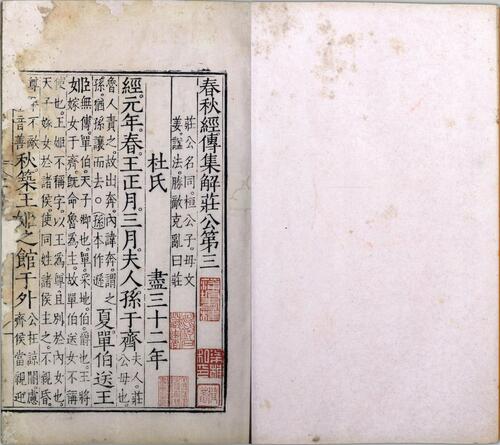 春秋經傳集解莊公第三
莊公名同桓公子母文
姜諡法勝敵克亂曰莊
杜氏 盡三十二年
經元年春王正月三月夫人孫于齊夫人莊
公母也
魯人責之故出奔內諱奔謂之
孫猶孫讓而去孫本作遜夏單伯送王
姬無傳單伯天子卿也單采地伯爵也王將
嫁女于齊既命魯爲主故單伯送女不稱
使也王姬不稱字以王爲尊且別於內女也
天子嫁女於諸侯使同姓諸侯主之不親昏
尊卑不敵
音善秋築王姬之館于外公在諒闇慮
齊侯當親迎